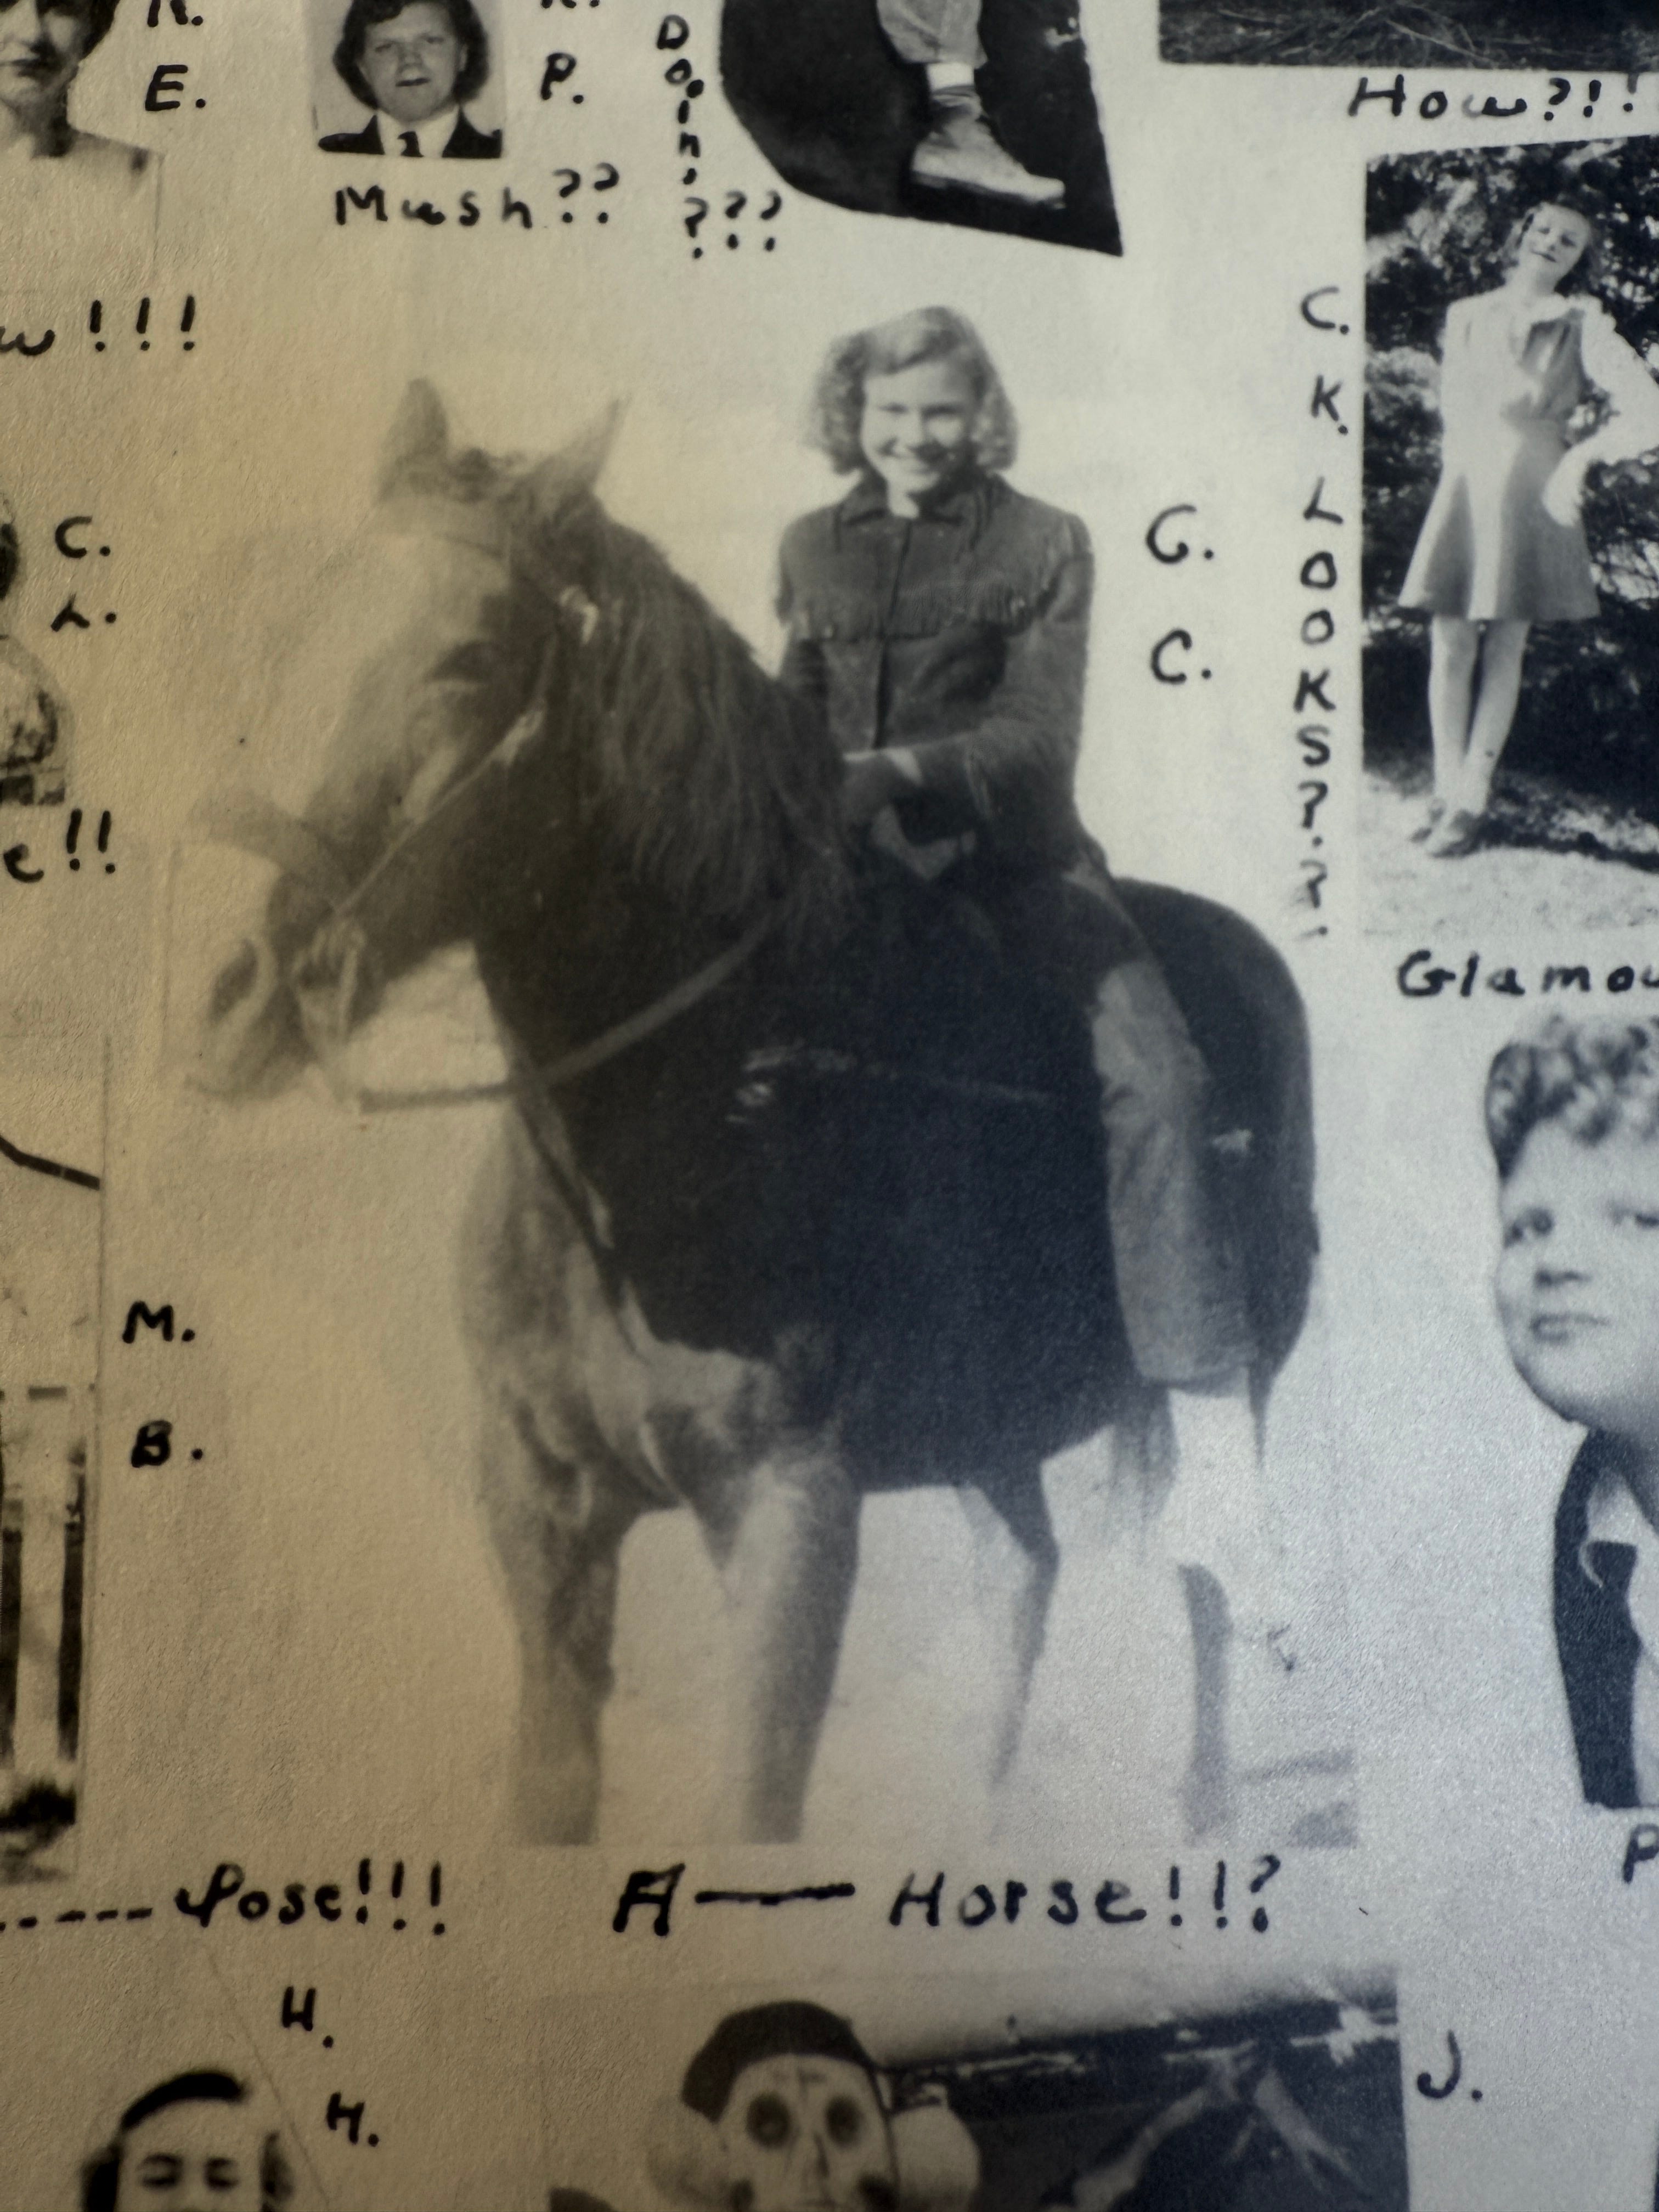 R.
E.
R.
P.
Mush??
Doin' ???
How?!!
w!!!
C.
K.
LOOKS??
C.
L.
G.
C.
e!!
Glamou
M.
B.
---- Pose!!!
A — Horse!!!?
P
H.
H.
J.